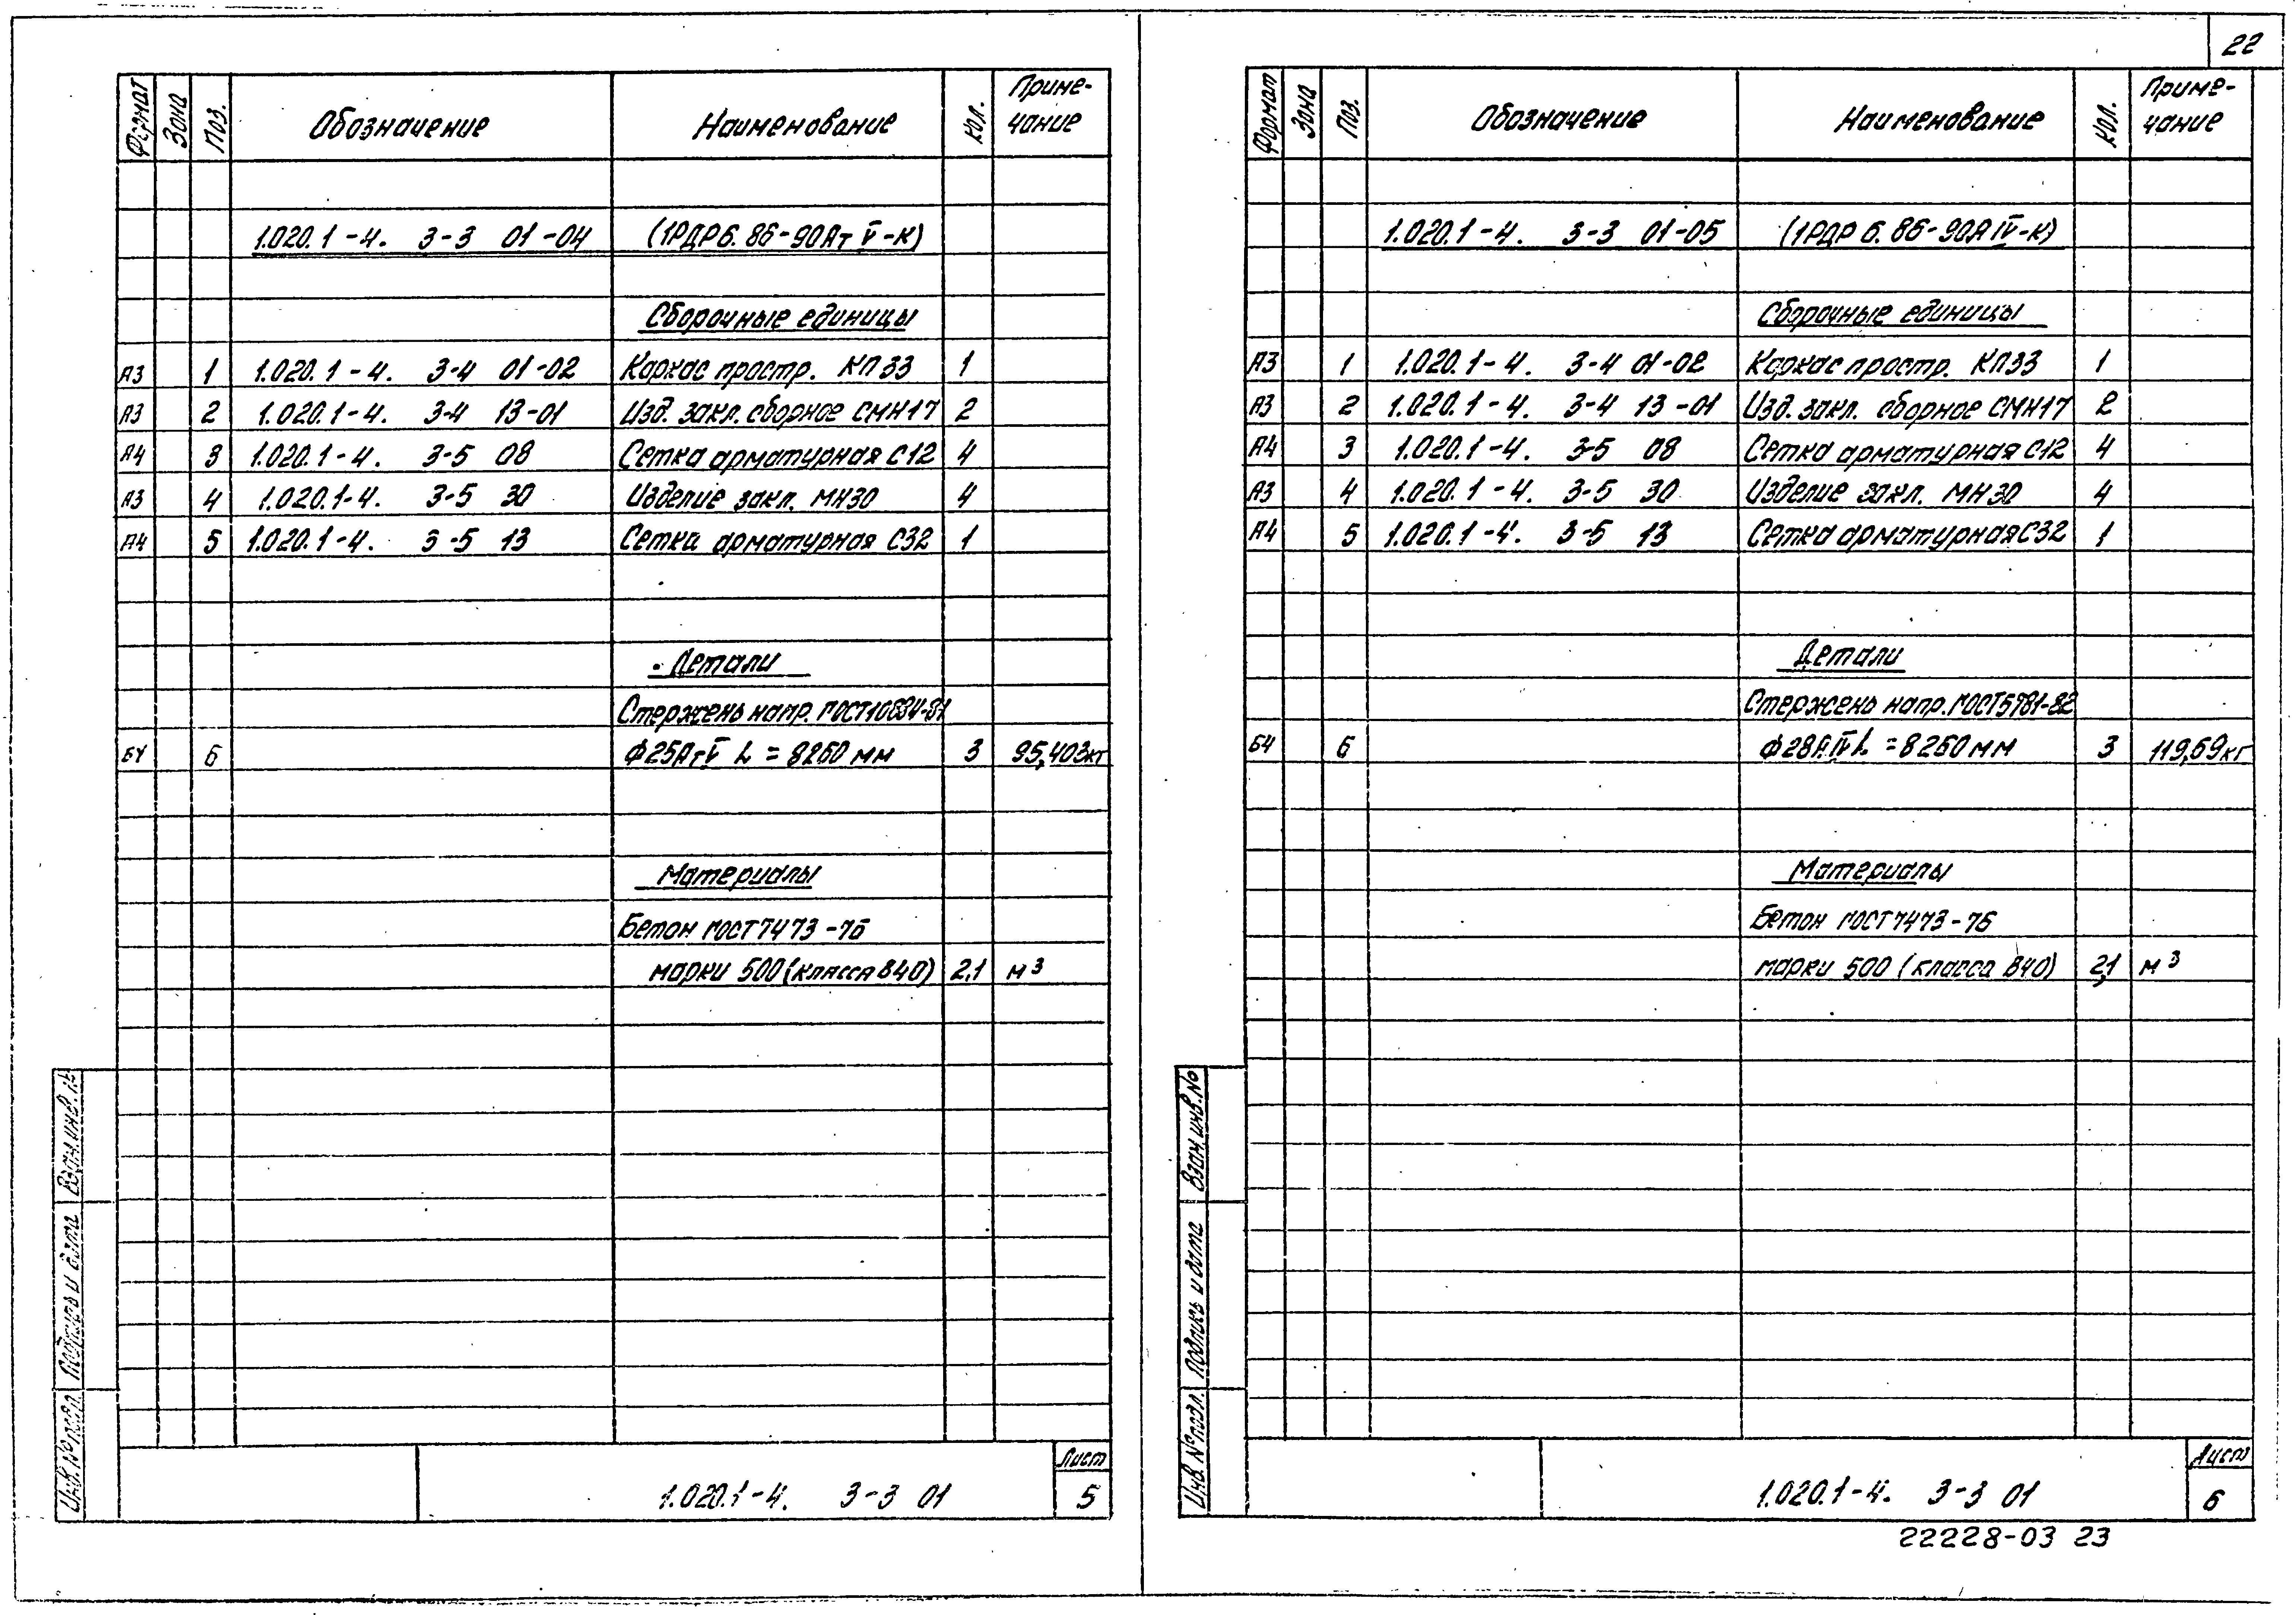 22
Формат Зона Поз. Обозначение Наименование Кол. Приме-
чание
1.020.1-4. 3-3 01-04 (1РДР6.86-90АтV-К)
Сборочные единицы
А3 1 1.020.1-4. 3-4 01-02 Каркас простр. КП33 1
А3 2 1.020.1-4. 3-4 13-01 Изд. закл. сборное СМН17 2
А4 3 1.020.1-4. 3-5 08 Сетка арматурная С12 4
А3 4 1.020.1-4. 3-5 30 Изделие закл. МН30 4
А4 5 1.020.1-4. 3-5 13 Сетка арматурная С32 1
Детали
Стержень напр. ГОСТ10884-81
БЧ 6 Ф25АтV L = 8260 мм 3 95,403кг
Материалы
Бетон ГОСТ7473-76
марки 500 (класса В40) 2,1 м³
Взам.инв.№
Подпись и дата
Инв.№подл.
1.020.1-4. 3-3 01
Лист
5
Формат Зона Поз. Обозначение Наименование Кол. Приме-
чание
1.020.1-4. 3-3 01-05 (1РДР6.86-90АIV-К)
Сборочные единицы
А3 1 1.020.1-4. 3-4 01-02 Каркас простр. КП33 1
А3 2 1.020.1-4. 3-4 13-01 Изд. закл. сборное СМН17 2
А4 3 1.020.1-4. 3-5 08 Сетка арматурная С12 4
А3 4 1.020.1-4. 3-5 30 Изделие закл. МН30 4
А4 5 1.020.1-4. 3-5 13 Сетка арматурная С32 1
Детали
Стержень напр. ГОСТ5781-82
БЧ 6 Ф28АIV L = 8260 мм 3 119,69кг
Материалы
Бетон ГОСТ7473-76
марки 500 (класса В40) 2,1 м³
Взам.инв.№
Подпись и дата
Инв.№подл.
1.020.1-4. 3-3 01
Лист
6
22228-03 23